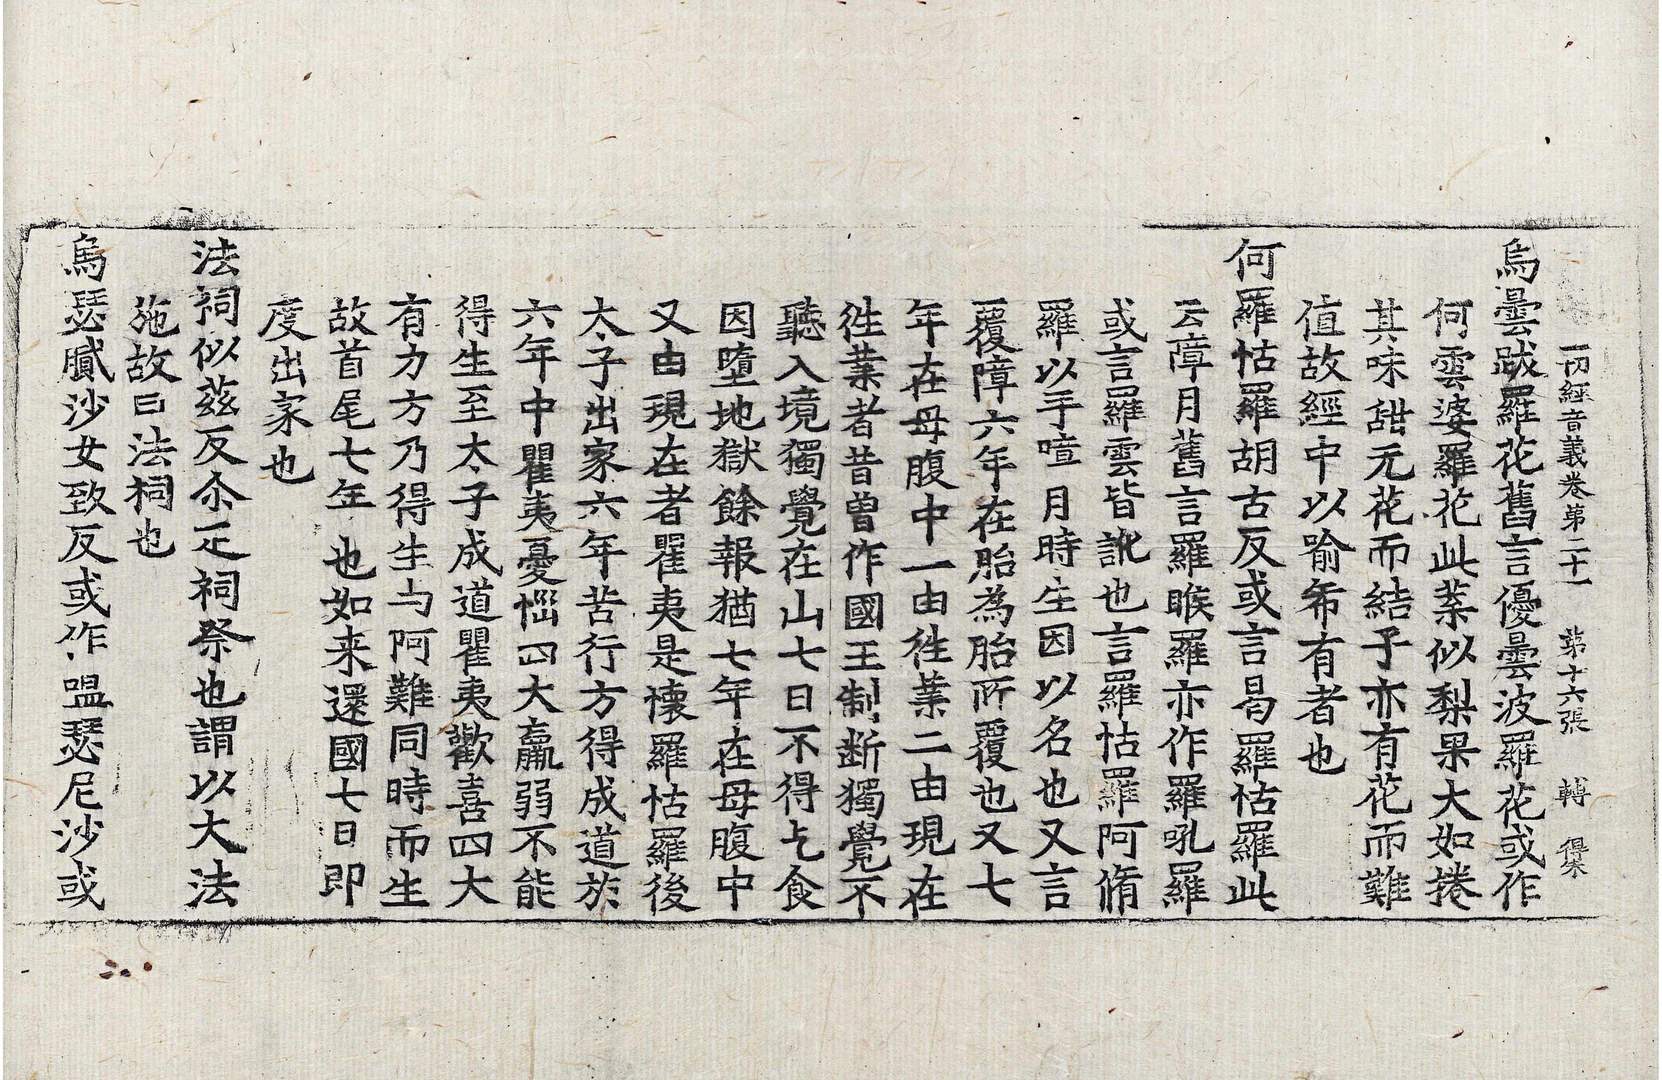 一切經音義卷第二十一　第十六張　轉　得宋
烏曇跋羅花舊言優曇波羅花或作
何雲婆羅花此葉似梨果大如捲
其味甜无花而結子亦有花而難
值故經中以喻希有者也
何羅怙羅胡古反或言曷羅怙羅此
云障月舊言羅睺羅亦作羅吼羅
或言羅雲皆訛也言羅怙羅阿脩
羅以手喧月時生因以名也又言
覆障六年在胎為胎所覆也又七
年在母腹中一由徃業二由現在
徃業者昔曾作國王制断獨覺不
聽入境獨覺在山七日不得乞食
因墮地獄餘報猶七年在母腹中
又由現在者瞿夷是懷羅怙羅後
太子出家六年苦行方得成道於
六年中瞿夷憂惱四大羸弱不能
得生至太子成道瞿夷歡喜四大
有力方乃得生与阿難同時而生
故首尾七年也如来還國七日即
度出家也
法祠似兹反尒疋祠祭也謂以大法
施故曰法祠也
烏瑟膩沙女致反或作嗢瑟尼沙或